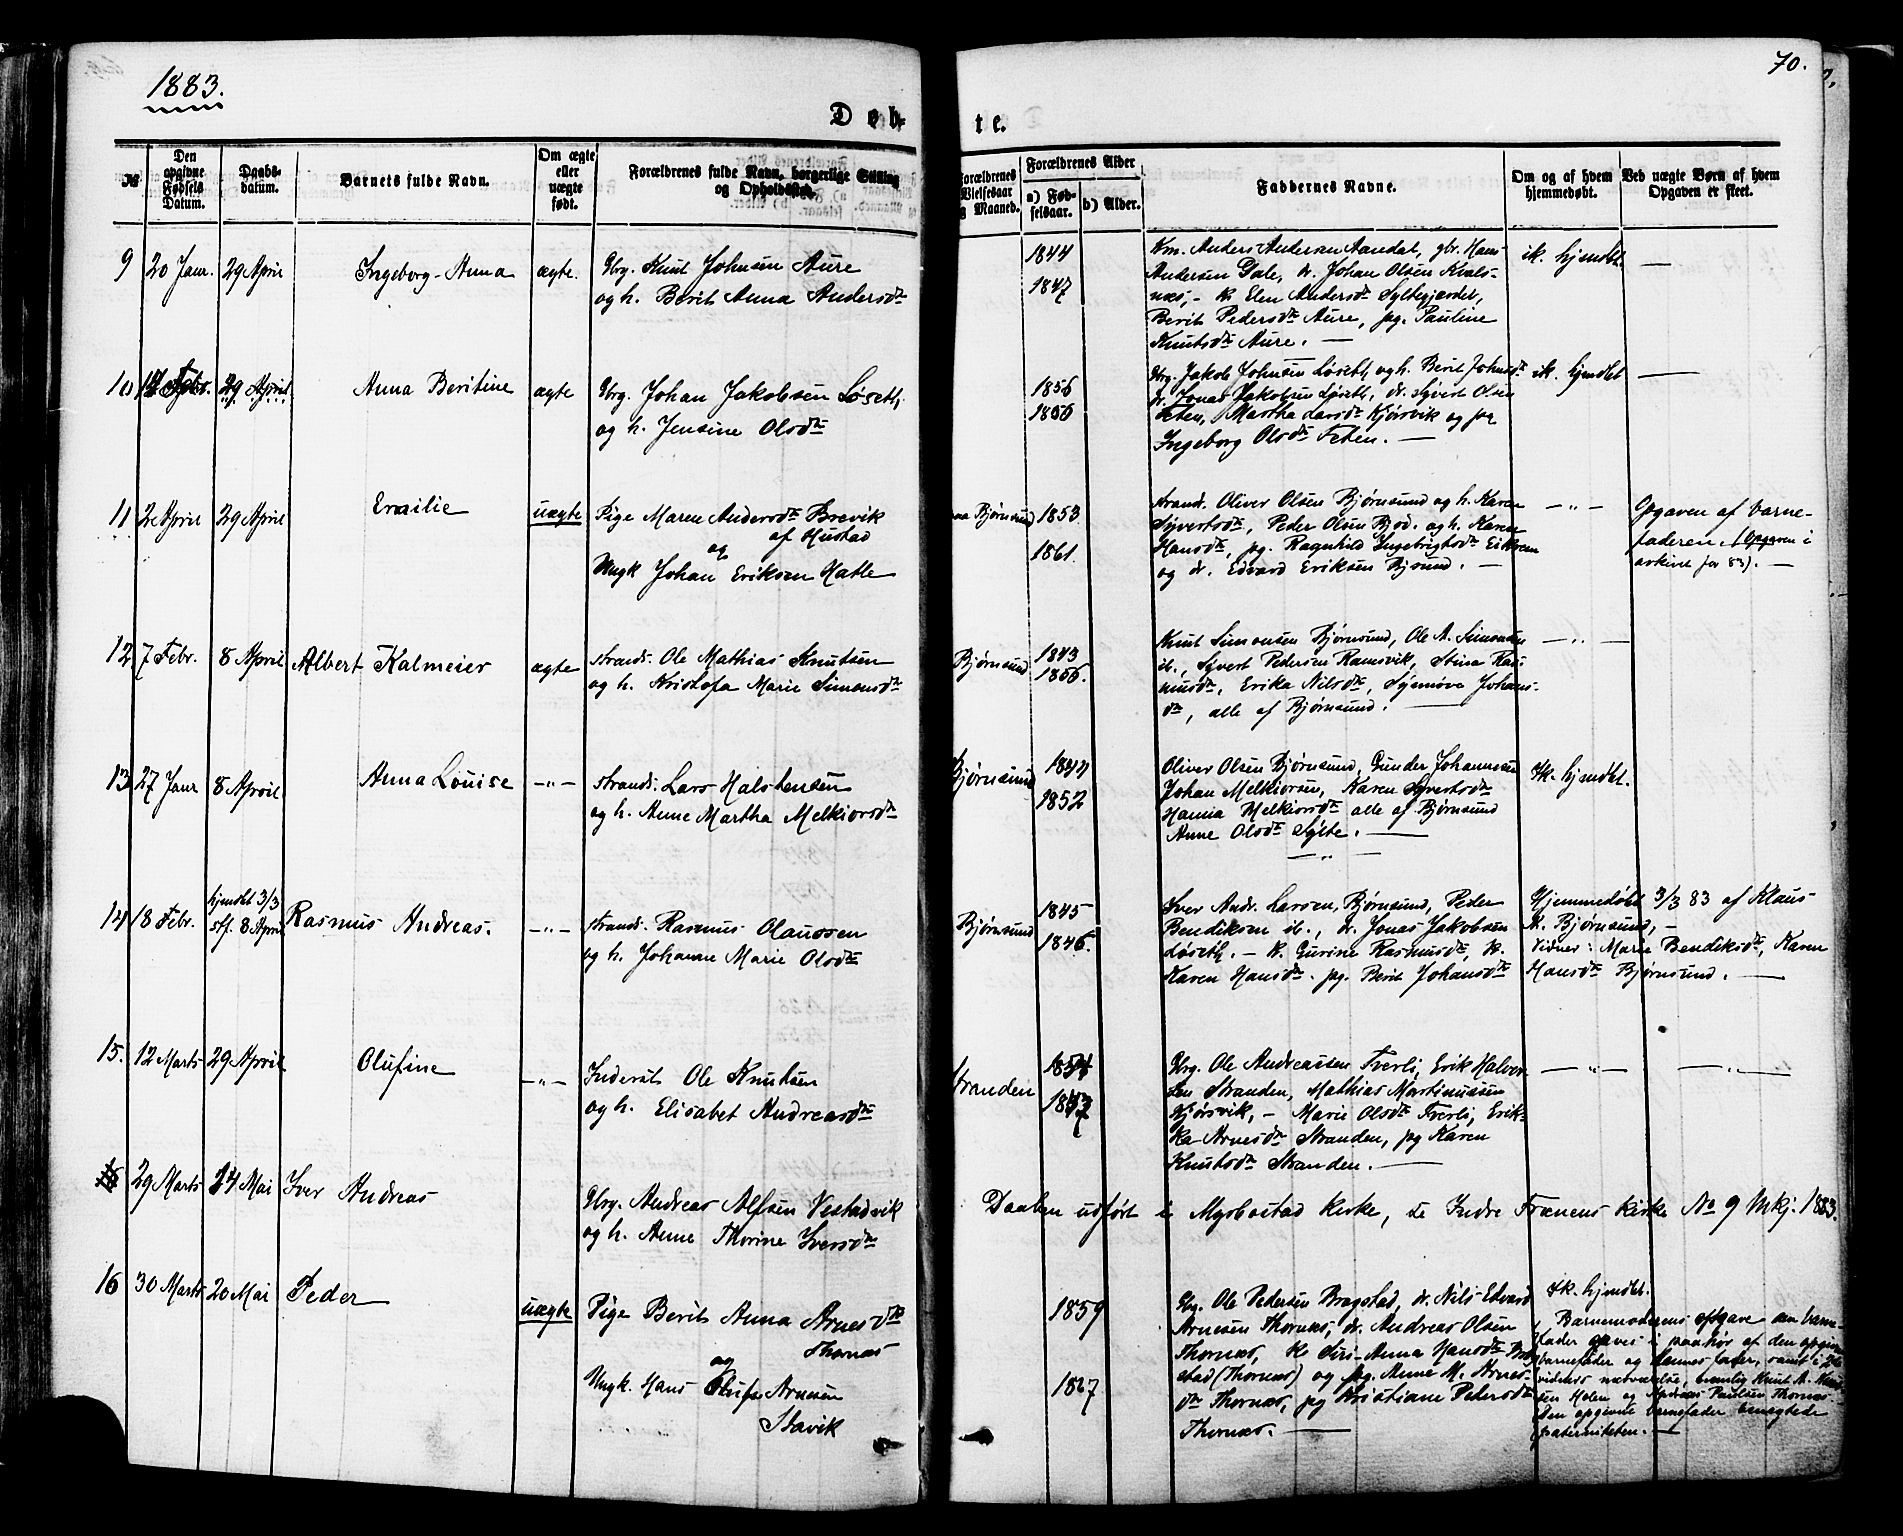 1883.
70.
Døb-
te.
№
Den opgivne Fødsels Datum.
Daabs-datum.
Barnets fulde Navn.
Om ægte eller uægte født.
Forældrenes fulde Navn, borgerlige Stilling og Opholdssted.
Forældrenes Alder
a) Fødselsaar.
b) Alder.
Faddernes Navne.
Om og af hvem hjemmedøbt.
Ved uægte Børn af hvem Opgaven er skeet.
9 20 Janr. 29 April Ingeborg-Anna ægte.
Gbrg. Knut Johnsen Aure
og h. Berit Anna Andersdtr
1844
1847
Km. Anders Andersen Aandal, gbr. Hans
Andersen Gale, dr. Johan Olsen Kvals-
næs, - k. Elen Andersdtr Syltegjærdet,
Berit Pedersdtr Aure, pg. Pauline
Knutsdtr Aure. —
ik. hjemdbt. —
10 Febr. 29 April Anna Beritine ægte
Gbrg. Johan Jakobsen Løseth,
og h. Jensine Olsdtr
1856
1856
Gbrg. Jakob Johnsen Løseth, og h. Berit Johnsdtr
dr. Jonas Jakobsen Løseth, dr. Syvert Olsen
Feten, Martha Larsdtr Kjørsvik og pg
Ingeborg Olsdtr Feten. —
ik. hjemdbt —
11 2 April 29 April Emilie uægte
Pige Maren Andersdtr Brevik
af Hustad
og
Ungk Johan Eriksen Hatle
Bjørnsund
1853
1861.
strands. Oliver Olsen Bjørnsund og h. Karen
Syvertsdtr, Peder Olsen Bjsd. og h. Karen
Hansdtr, pg. Ragnhild Ingebrigtsdtr Eikrem
og dr. Edvard Eriksen Bjsund. —
— „ —
Opgaven af barne-
faderen. (Opgaven i
arkivet for 83). —
12 7 Febr. 8 April Albert Kalmeier ægte
strands. Ole Mathias Knutsen
og h. Kristofa Marie Simonsdtr
Bjørnsund
1843
1856.
Knut Simonsen Bjørnsund, Ole A. Simonsen
ib., Syvert Pedersen Ramsvik, Stina Ras-
musdtr, Erika Nilsdtr, Synnøve Johans-
dtr, alle af Bjørnsund. —
— „ —
13 27 Janr 8 April Anna Louise — „ —
strands. Lars Halstensen
og h. Anne Martha Melkiorsdtr
Bjørnsund
1852
Oliver Olsen Bjørnsund, Gunder Johannsen
Johan Melkiorsen, Karen Syvertsdtr
Hanna Melkiorsdtr alle af Bjørnsund
Anne Olsdtr Sylte. —
— „ —
ik. hjemdbt.
14 18 Febr. hjemdbt 3/3
stf. 8 April Rasmus Andreas. — „ —
strands. Rasmus Olaussen
og h. Johanne Marie Olsdtr
Bjørnsund
1845
1846.
Iver Andr. Larsen, Bjørnsund, Peder
Bendiksen ib., dr. Jonas Jakobsen
Løseth. — k. Gurine Rasmusdtr, k.
Karen Hansdtr. pg. Berit Johansdtr
Hjemmedøbt 3/3 83 af Klaus
K. Bjørnsund, -
Vidner: Marie Bendiksdtr, Karen
Hansdtr Bjørnsund. —
15. 12 Marts 29 April Olufine — „ —
Inderst Ole Knutsen
og h. Elisabet Andreasdtr
Stranden
Gbrg. Ole Andreassen Tverli, Erik Halvor-
sen Stranden, Mathias Martinussen
Kjørsvik, - Marie Olsdtr Tverli, Erik-
ka Arnesdtr Stranden, pg Karen
Knutsdtr Stranden. —
— „ — — „ —
29 Marts 14 Mai Iver Andreas
Gbrg. Andreas Alfsen Vestadvik
og h. Anne Thorine Iversdtr
Daaben udført i Myrbostad Kirke, se Indre Frænens kirke No 9 Mkj. 1883.
16 30 Marts 20 Mai Peder uægte
Pige Berit Anna Arnesdtr
Thornæs
og
Ungk. Hans Olufs Arnesen
Stavik
1859
1867
Gbrg. Ole Pedersen Bragstad, dr. Nils Edvard
Arnesen Thornæs, dr. Andreas Olsen
Thornæs, k. Siri-Anna Hansdtr Brag-
stad (Thornæs) og pg. Anne M. Arnes-
dtr Thornæs, pg Kristiane Petersdtr
Thornæs. —
ik. hjemdbt.
Barnemoderens opgave om barne-
fader gaves i paahør af den opgivne
barnefader og hennes fader, samt i
vidners nærværelse, nemlig Knut A.
Holen og Andreas Paulsen Thornæs
Den opgivne barnefader benegtede
paterniteten. —